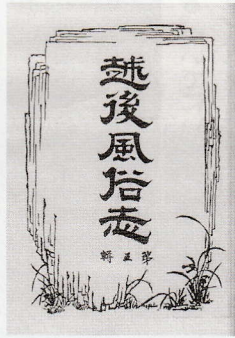 越後風俗志
第五輯